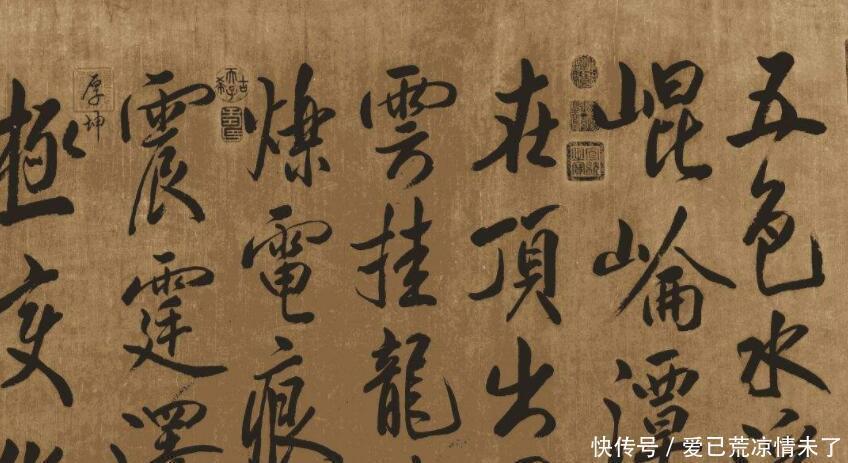 五色水
崐崘潭
在頂出
雲挂龍
爍電痕
震霆澤
厚坤
極变
快传号 / 爱已荒凉情未了